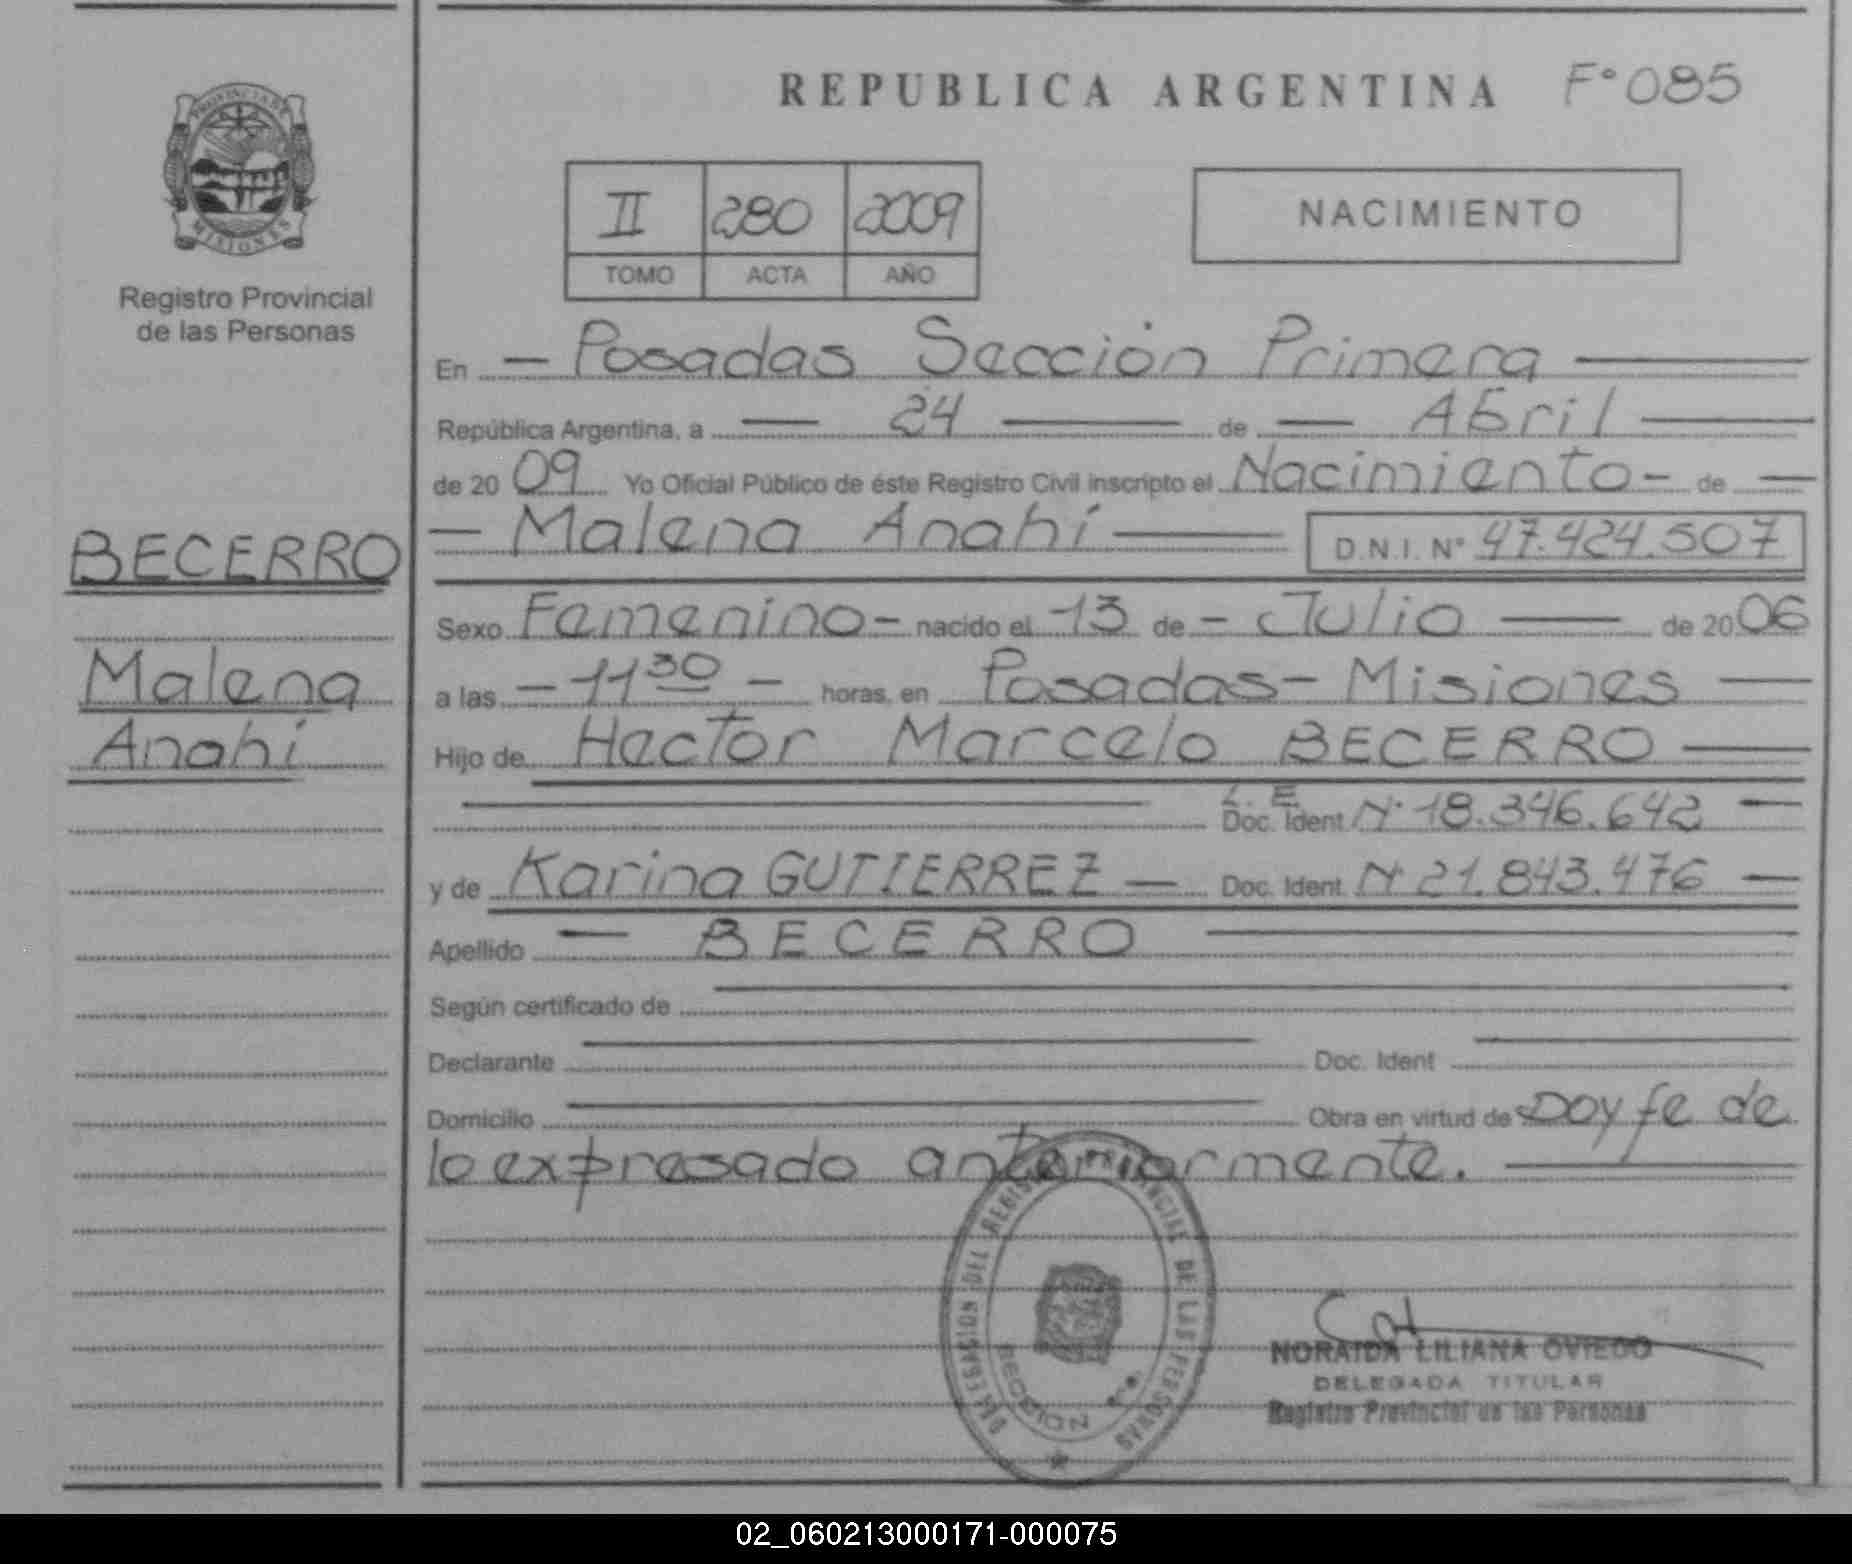 REPUBLICA ARGENTINA F° 085
PROVINCIA DE
MISIONES
Registro Provincial
de las Personas
II 280 2009
TOMO ACTA AÑO
NACIMIENTO
En Posadas Sección Primera
República Argentina, a 24 de Abril
de 20 09 Yo Oficial Público de éste Registro Civil inscripto el Nacimiento - de
Malena Anahí D.N.I. N° 47.424.507
BECERRO
Malena
Anahí
Sexo Femenino - nacido el 13 de - Julio de 20 06
a las - 11 30 - horas, en Posadas - Misiones
Hijo de Hector Marcelo BECERRO
L. E.
Doc. Ident N° 18.346.642
y de Karina GUTIERREZ Doc. Ident. N° 21.843.476
Apellido BECERRO
Según certificado de
Declarante Doc. Ident
Domicilio Obra en virtud de Doy fe de
lo expresado anteriormente.
DELEGACION DEL REGISTRO PROVINCIAL DE LAS PERSONAS
SECCION 1ra.
NORAIDA LILIANA OVIEDO
DELEGADA TITULAR
Registro Provincial de las Personas
02_060213000171-000075